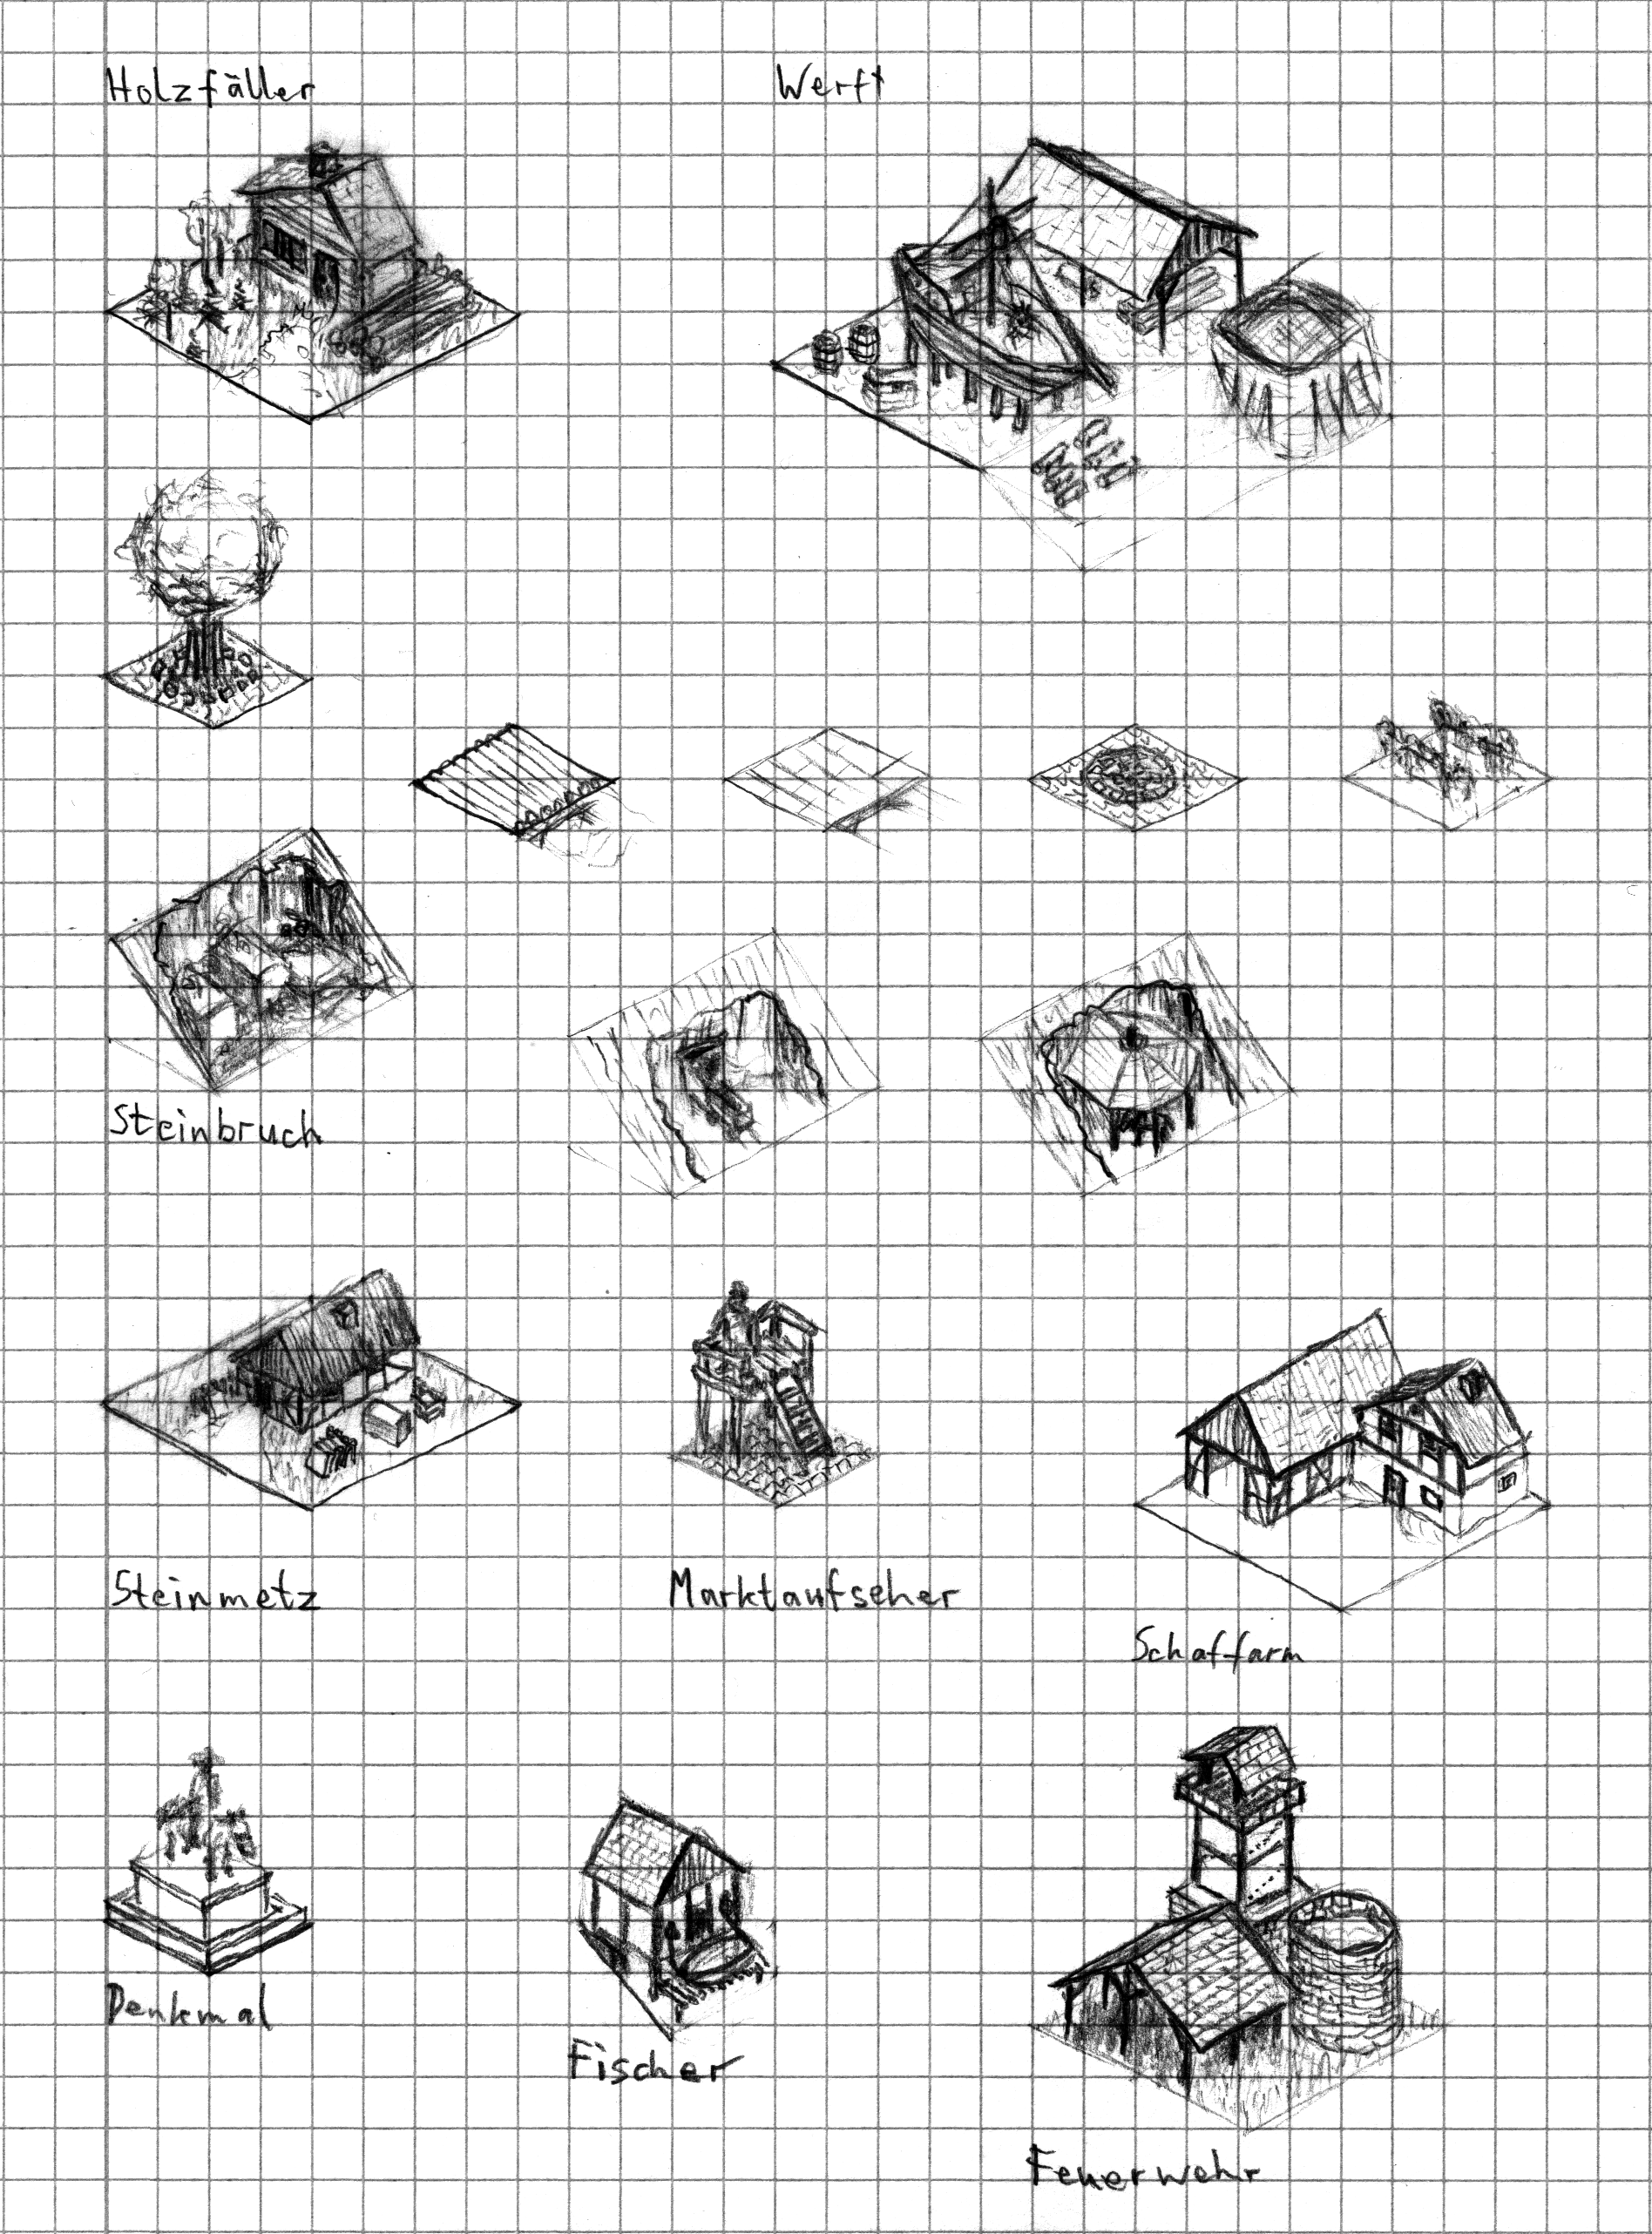 Holzfäller
Werft
Steinbruch
Steinmetz
Marktaufseher
Schaffarm
Denkmal
Fischer
Feuerwehr